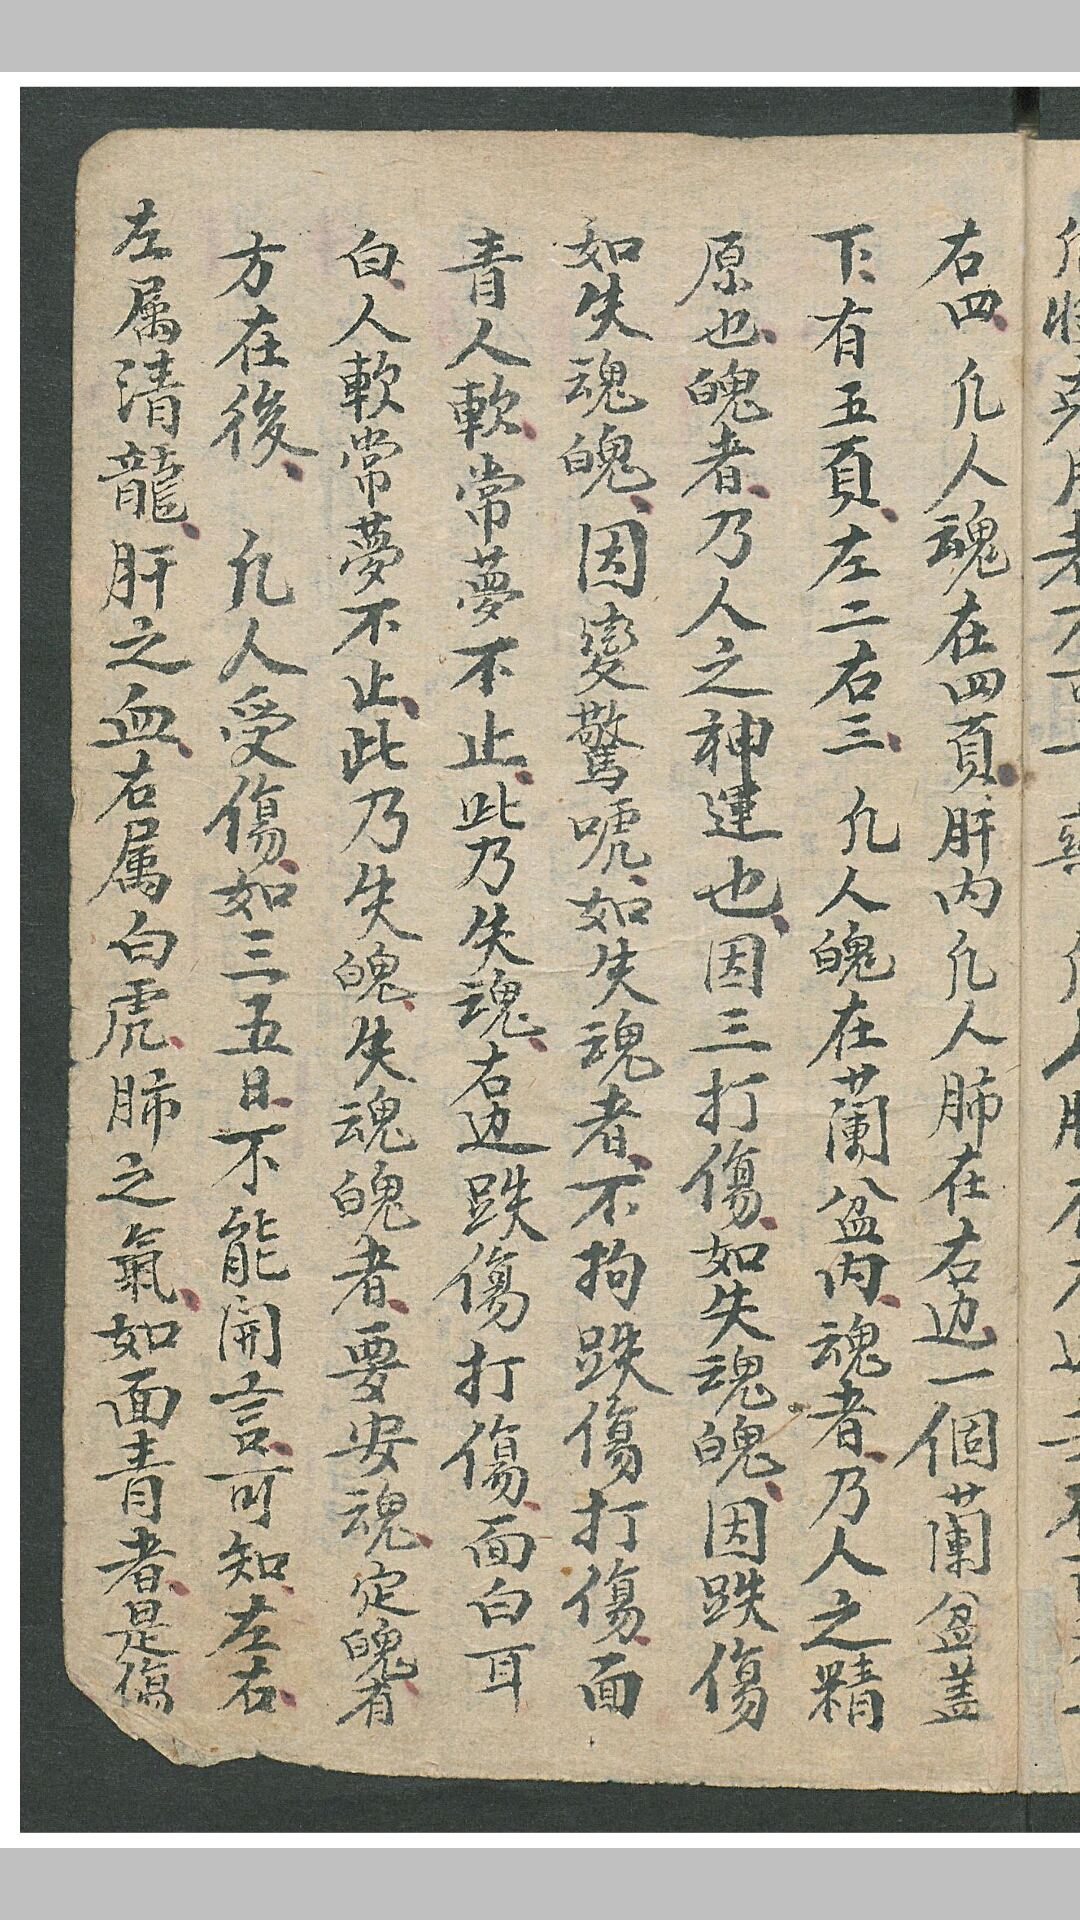 右四、凢人魂在四頁肝内凢人肺在右边一個蘭盆盖
下、有五頁、左二右三、凢人魄在蘭盆内、魂者、乃人之精
原也、魄者、乃人之神運也、因三打傷、如失魂魄、因跌傷
如失魂魄、因变驚唬、如失魂者、不拘跌傷打傷、面
青人軟、常夢不止、此乃失魂、右边跌傷打傷、面白耳
白、人軟常夢不止、此乃失魄、失魂魄者、要安魂、定魄、有
方在後、凢人受傷、如三五日、不能開言、可知、左右、
左属清龍、肝之血、右属白虎、肺之氣、如面青者、是傷